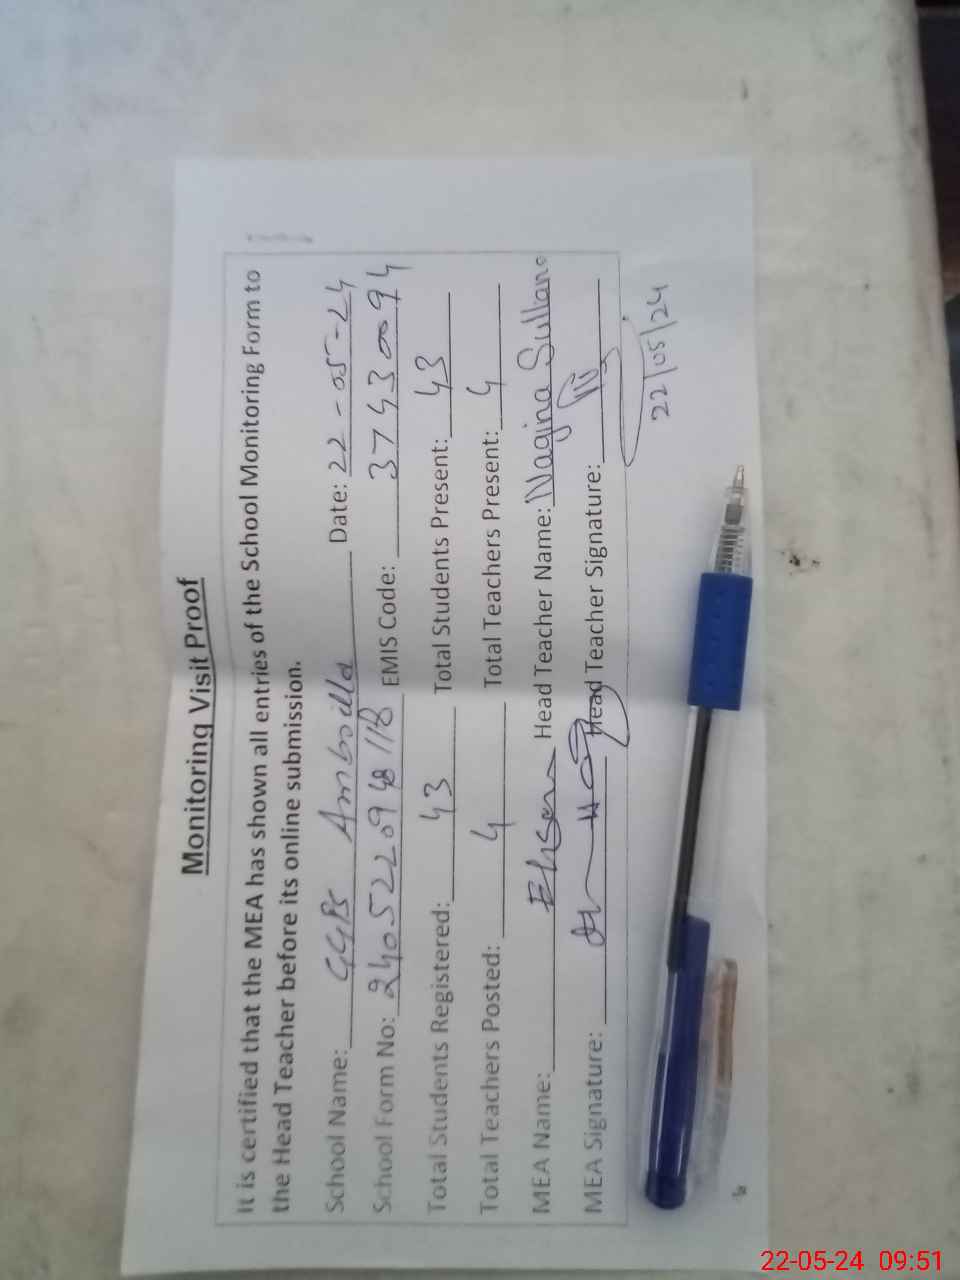 Monitoring Visit Proof
It is certified that the MEA has shown all entries of the School Monitoring Form to
the Head Teacher before its online submission.
School Name: GGPS Amboilla Date: 22-05-24
School Form No: EMIS Code: 37430094
Total Students Registered: 43 Total Students Present: 43
Total Teachers Posted: 4 Total Teachers Present: 4
MEA Name: Ehsan Head Teacher Name: Nagina Sultana
MEA Signature: Head Teacher Signature:
22/05/24
22-05-24 09:51